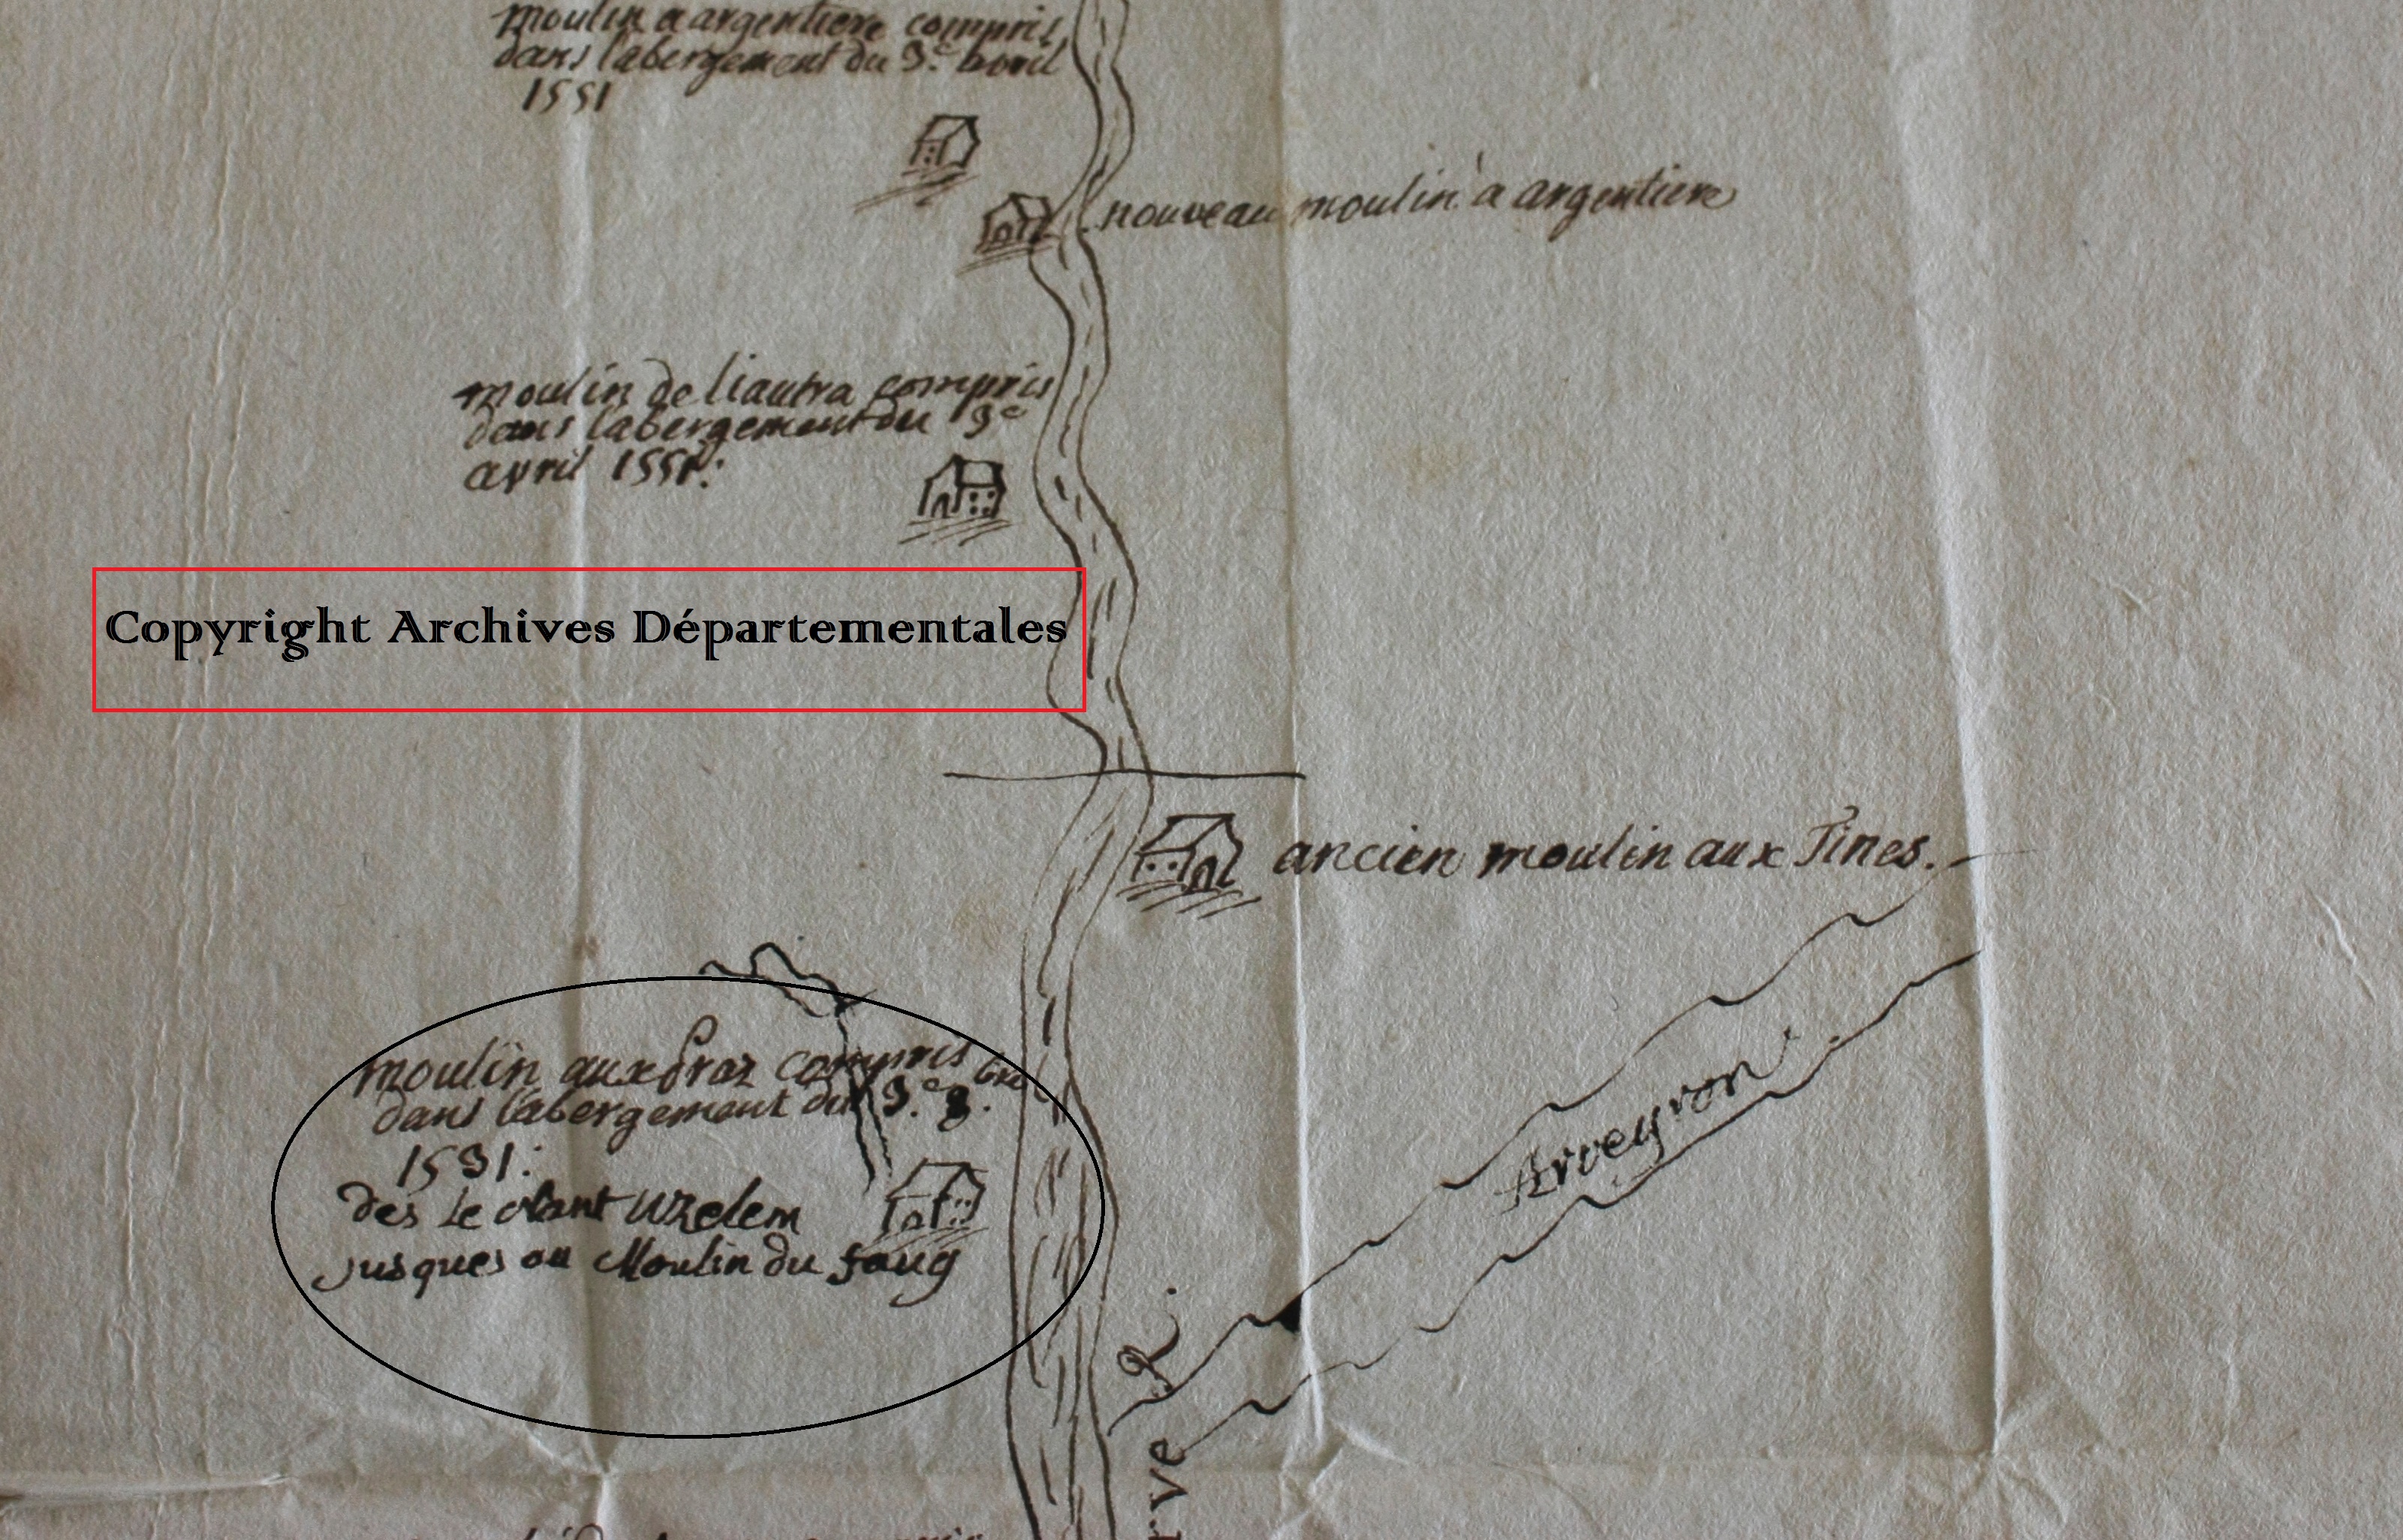 moulin a argentiere compris
dans l'abergement du 3.e avril
1551
nouveau moulin a argentiere
moulin de liautra compris
dans l'abergement du 3e
avril 1551.
Copyright Archives Départementales
ancien moulin aux Tines.
moulin aux praz compris
dans l'abergement du 3.e 8.bre
1531.
des le nant Uzelem
jusques au Moulin du foug
Arveyron.
R.
rve